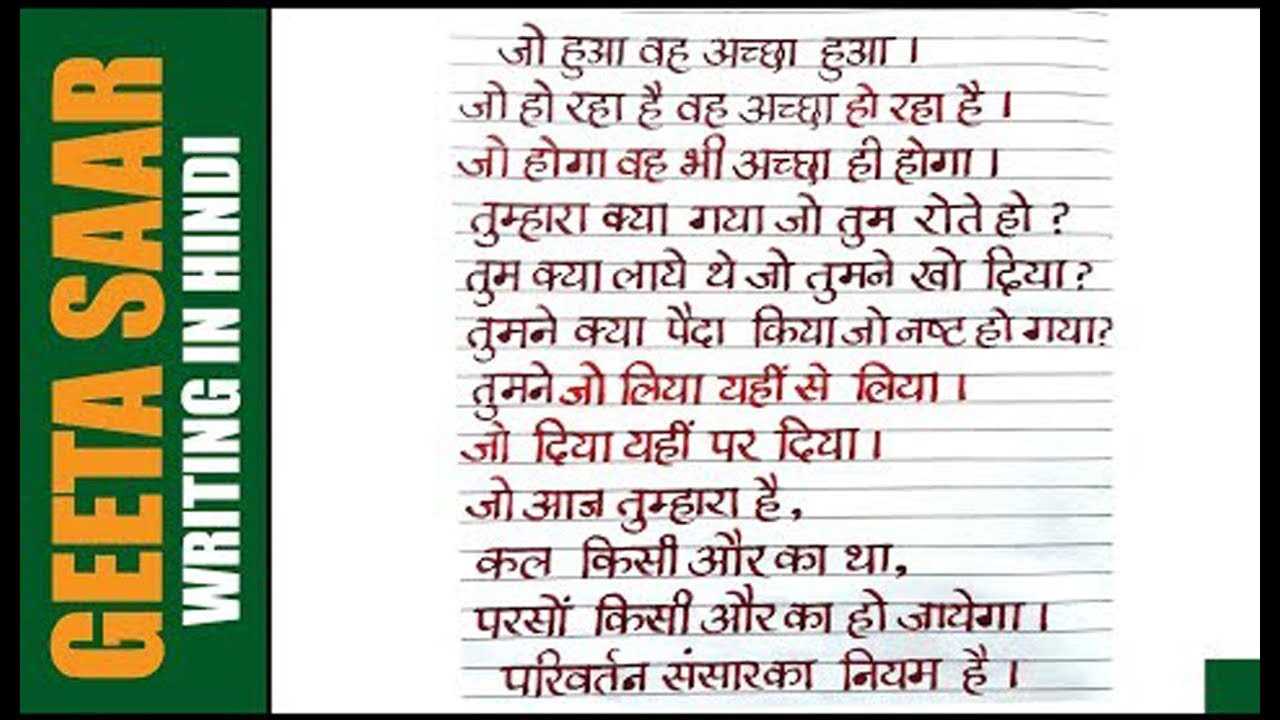 GEETA SAAR
WRITING IN HINDI
जो हुआ वह अच्छा हुआ ।
जो हो रहा है वह अच्छा हो रहा है ।
जो होगा वह भी अच्छा ही होगा ।
तुम्हारा क्या गया जो तुम रोते हो ?
तुम क्या लाये थे जो तुमने खो दिया ?
तुमने क्या पैदा किया जो नष्ट हो गया?
तुमने जो लिया यहीं से लिया ।
जो दिया यहीं पर दिया ।
जो आज तुम्हारा है ,
कल किसी और का था ,
परसों किसी और का हो जायेगा ।
परिवर्तन संसार का नियम है ।